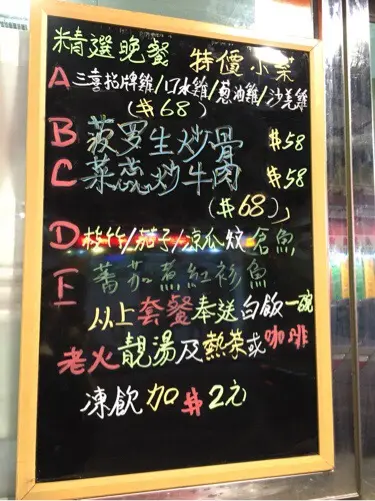 精選晚餐 特價小菜
A 三喜招牌雞/口水雞/蔥油雞/沙羌雞
($68)
B 菠罗生炒骨 $58
C 菜芯炒牛肉 $58
($68)
D 枝竹/茄子/凉瓜炆倉魚
F 蕃茄煮紅衫魚
以上套餐奉送白飯一碗
老火靚湯及熱菜或咖啡
凍飲加$2元